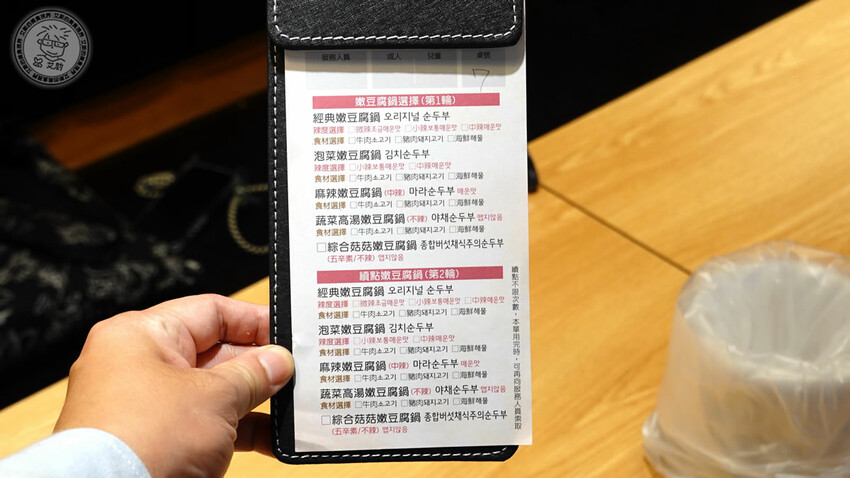 艾酌
服務人員 成人 兒童 桌號
7
嫩豆腐鍋選擇(第1輪)
經典嫩豆腐鍋 오리지널 순두부
辣度選擇 □微辣조금매운맛 □小辣보통매운맛 □中辣매운맛
食材選擇 □牛肉소고기 □豬肉돼지고기 □海鮮해물
泡菜嫩豆腐鍋 김치순두부
辣度選擇 □小辣보통매운맛 □中辣매운맛
食材選擇 □牛肉소고기 □豬肉돼지고기 □海鮮해물
麻辣嫩豆腐鍋(中辣) 마라순두부 매운맛
食材選擇 □牛肉소고기 □豬肉돼지고기 □海鮮해물
蔬菜高湯嫩豆腐鍋(不辣) 야채순두부 맵지않음
食材選擇 □牛肉소고기 □豬肉돼지고기 □海鮮해물
□綜合菇菇嫩豆腐鍋 종합버섯채식주의순두부
(五辛素/不辣) 맵지않음
續點嫩豆腐鍋(第2輪)
經典嫩豆腐鍋 오리지널 순두부
辣度選擇 □微辣조금매운맛 □小辣보통매운맛 □中辣매운맛
食材選擇 □牛肉소고기 □豬肉돼지고기 □海鮮해물
泡菜嫩豆腐鍋 김치순두부
辣度選擇 □小辣보통매운맛 □中辣매운맛
食材選擇 □牛肉소고기 □豬肉돼지고기 □海鮮해물
麻辣嫩豆腐鍋(中辣) 마라순두부 매운맛
食材選擇 □牛肉소고기 □豬肉돼지고기 □海鮮해물
蔬菜高湯嫩豆腐鍋(不辣) 야채순두부 맵지않음
食材選擇 □牛肉소고기 □豬肉돼지고기 □海鮮해물
□綜合菇菇嫩豆腐鍋 종합버섯채식주의순두부
(五辛素/不辣) 맵지않음
續點不限次數，本單用完時，可再向服務人員索取